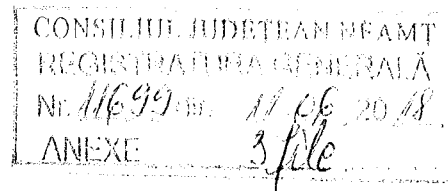 CONSILIUL JUDEȚEAN NEAMȚ
REGISTRATURA GENERALĂ
Nr. 11699 din 11 06 2018
ANEXE 3 file